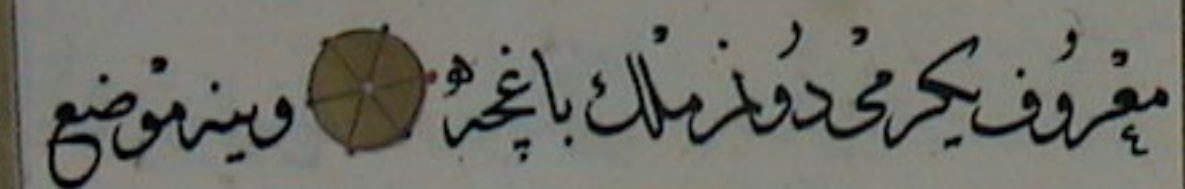 معروف يكرمى ملك باغچه وينه موضع